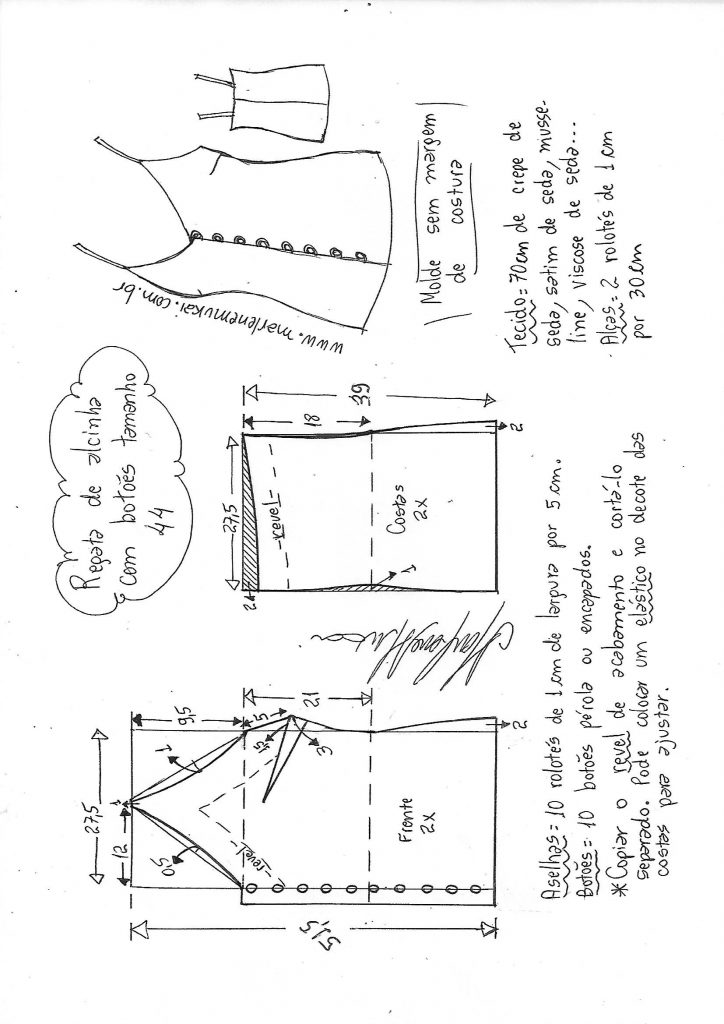 Regata de alcinha
com botões tamanho
44
www.marlenemukai.com.br
Molde sem margem
de costura
27,5
12
1
9,5
1
0,5
5
1,5
3
21
revel
Frente
2X
2
51,5
27,5
2
18
39
revel
Costas
2X
1
2
Tecido = 70cm de crepe de
seda, satim de seda, musse-
line, viscose de seda...
Alças = 2 rolotés de 1 cm
por 30 cm
Aselhas = 10 rolotés de 1 cm de largura por 5 cm.
Botões = 10 botões pérola ou encapados.
* Copiar o revel de acabamento e cortá-lo
separado. Pode colocar um elástico no decote das
costas para ajustar.